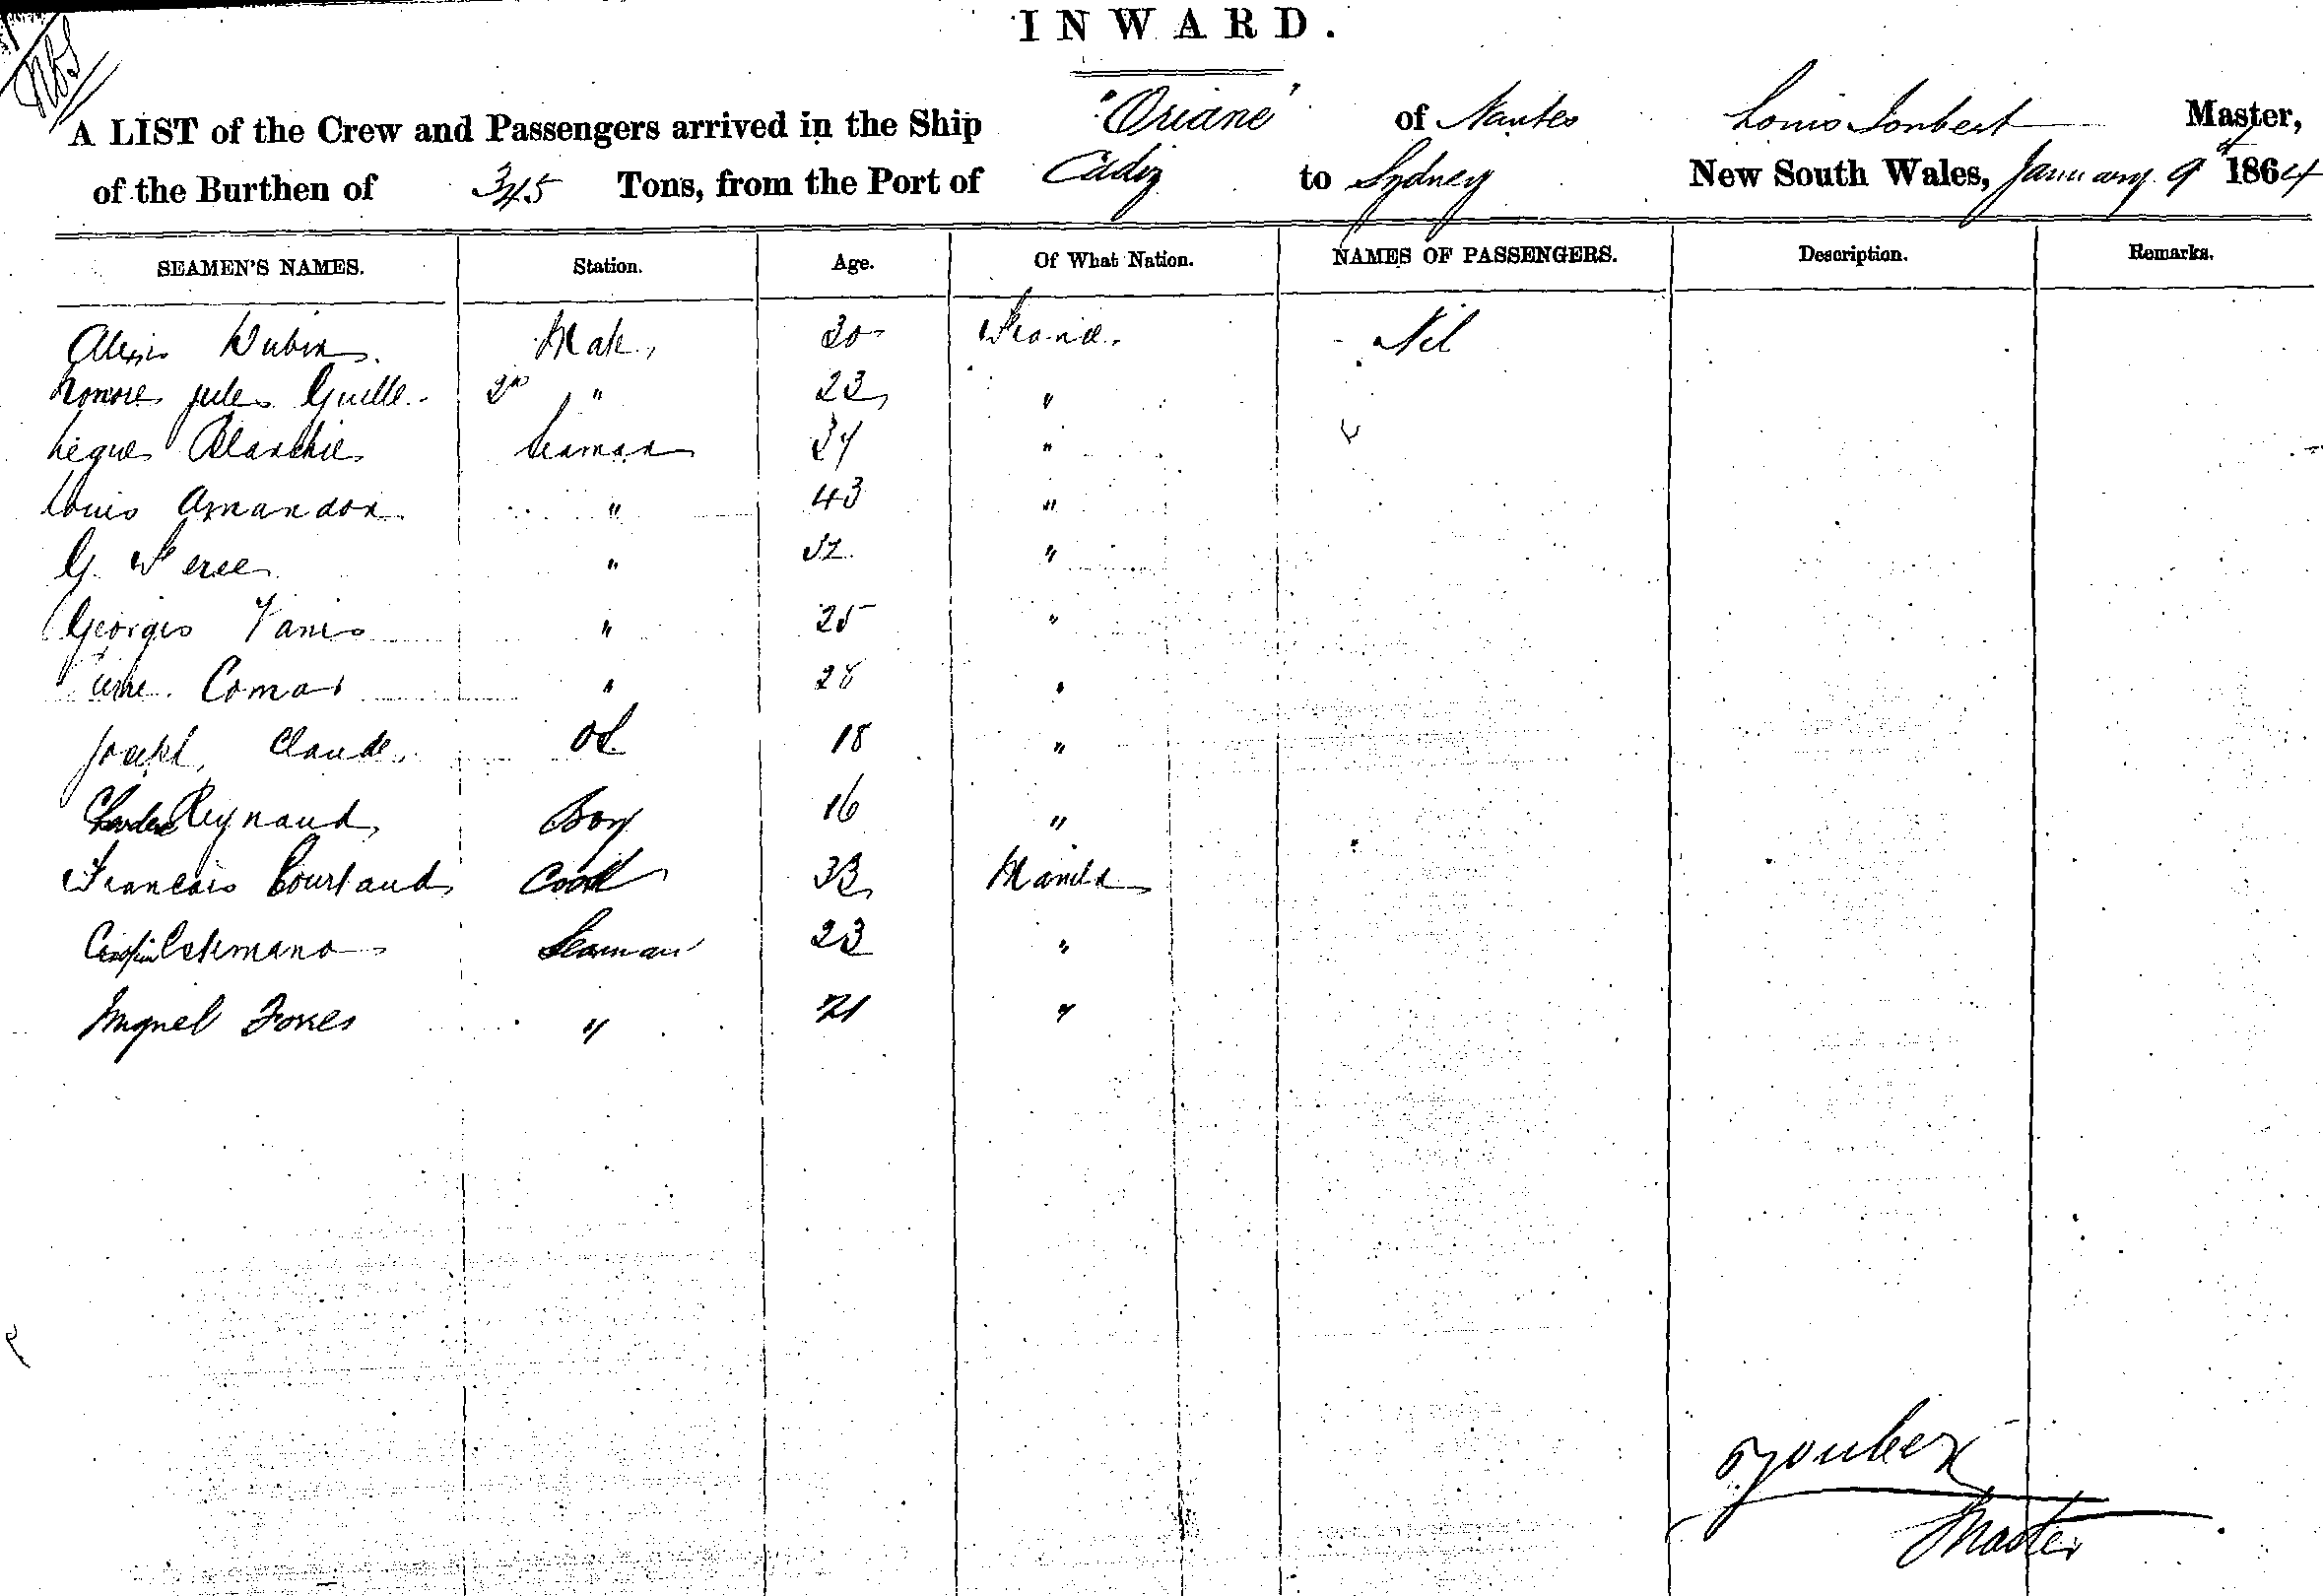 INWARD.
A LIST of the Crew and Passengers arrived in the Ship "Oriane" of Nantes Louis Master,
of the Burthen of 345 Tons, from the Port of Cadiz to Sydney New South Wales, January 9th 1864
SEAMEN'S NAMES. Station. Age. Of What Nation. NAMES OF PASSENGERS. Description. Remarks.
Alexis Dubin Mate, 30 France. Nil
Honore jules Guille 2nd " 23 "
Seaman "
Louis Amandon " 43 "
G. " 32 "
Georges " 25 "
Comar " 28 "
Joseph Claude OS 18 "
Reynaud Boy 16 "
Francois Courtaud Cook 33 Manila
Seaman 23 "
Miguel " 21 "
Master